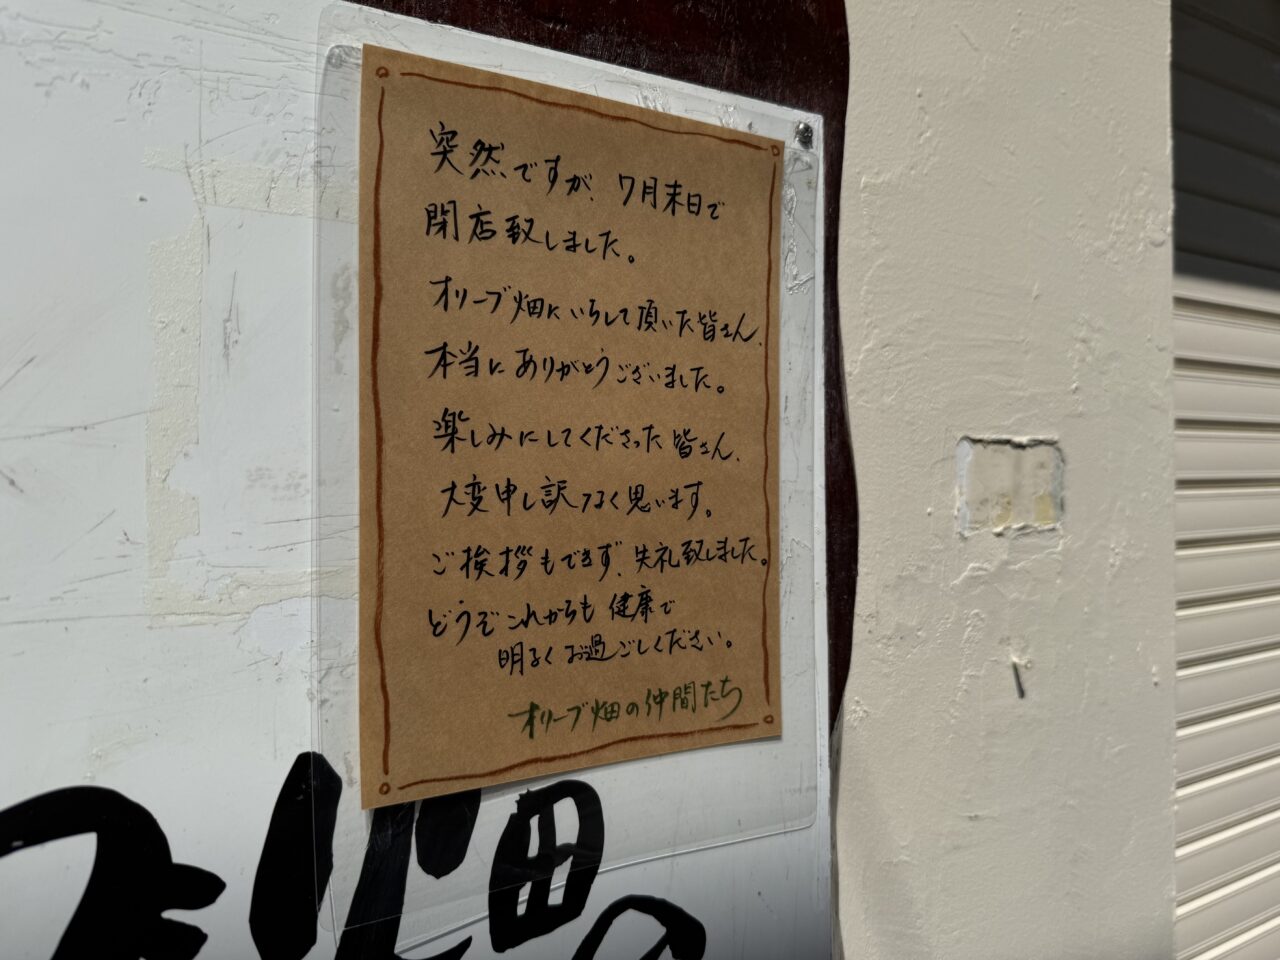 突然ですが、7月末日で
閉店致しました。
オリーブ畑にいらして頂いた皆さん、
本当にありがとうございました。
楽しみにしてくださった皆さん、
大変申し訳なく思います。
ご挨拶もできず、失礼致しました。
どうぞこれからも健康で
明るくお過ごしください。
オリーブ畑の仲間たち
畑の